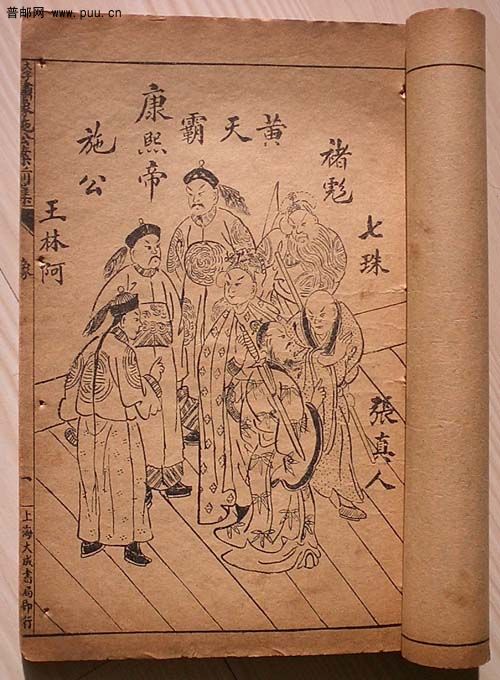 普邮网 www.puu.cn
褚彪
七珠
張真人
黃天霸
康熙帝
施公
王林阿
繡像施公案
像
一
上海大成書局印行